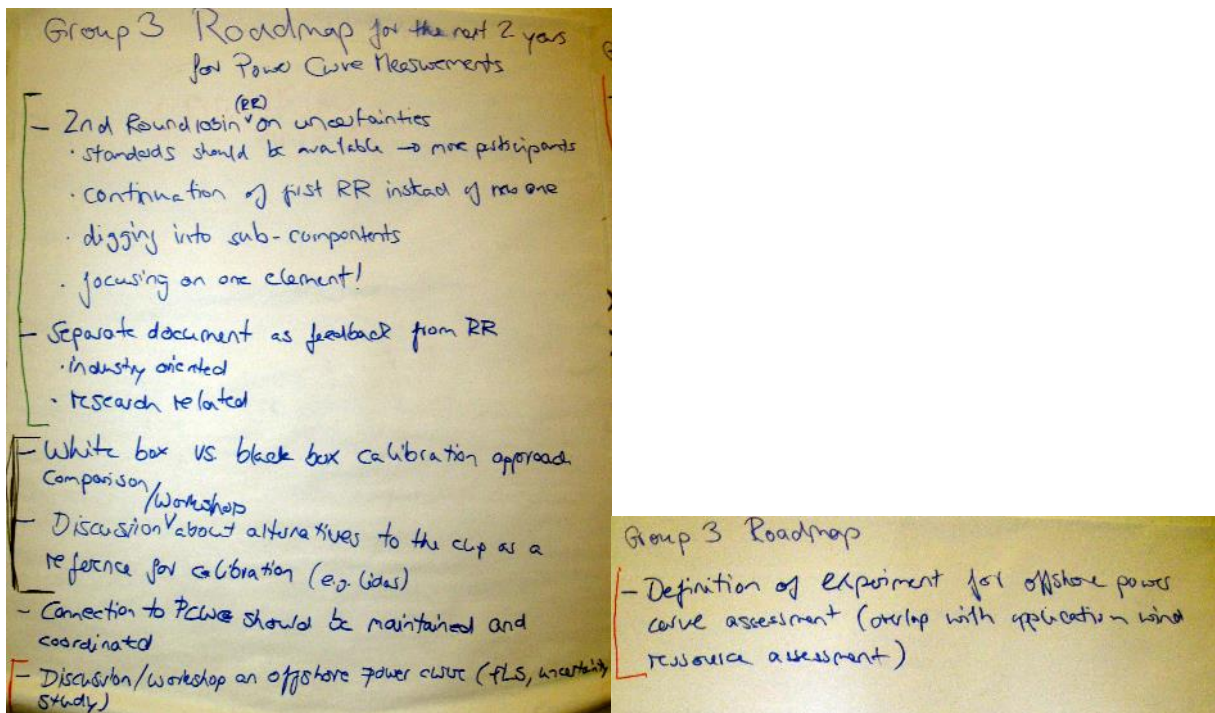 Group 3 Roadmap for the next 2 years
for Power Curve Measurements
- 2nd Round robin (RR) on uncertainties
· standards should be available → more participants
· continuation of first RR instead of new one
· digging into sub-compontents
· focusing on one element!
- Separate document as feedback from RR
· industry oriented
· research related
- White box vs. black box calibration approach
comparison
- Discussion/workshop about alternatives to the cup as a
reference for calibration (e.g. lidars)
- Connection to PCWG should be maintained and
coordinated
- Discussion/workshop on offshore power curve (FLS, uncertainty
study)
Group 3 Roadmap
- Definition of experiment for offshore power
curve assessment (overlap with application wind
ressource assessment)